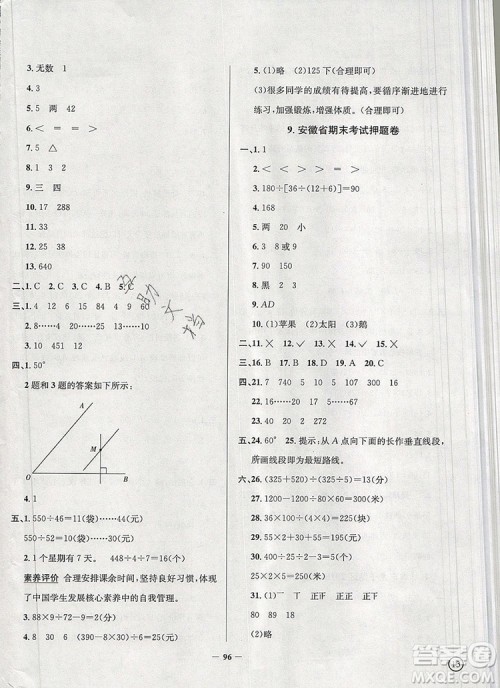 3. 无数 1
4. 3
5. 25 两 42
6. < = = >
7. 5 △
8. > < > =
9. 三 四
10. 17 288
11. 33
12. 25
13. 640
二、1. C 2. B 3. C 4. B 5. C
三、1. 24 32 16 4 9 60
2. 8……4 20……6 10……20
3. 10 451 12
四、1. 50°
2题和3题的答案如下所示:
A
M
O B
4. 1
五、1. 550÷46=11(袋)……44(元)
550÷54=10(袋)……10(元)
2. 1个星期有7天。 448÷7=64(元)
素养评价 合理安排课余时间,坚持良好习惯,体现
了中国学生发展核心素养中的自我管理。
3. 88×9÷72-9=2(元)
4. 8 30 6 30-8×3=6(元)
5. (1)略 (2)125下(合理即可)
(3)很多同学的成绩有待提高,要循序渐进地进行
练习,加强锻炼,增强体质。(合理即可)
9. 安徽省期末考试押题卷
一、1. 1
2. < > > < >
3. 180÷[36÷(3+6)]=90
4. 168
5. 两 20 小
6. 3 8或9
7. 90 150
8. 黑 2 3
9. AD
10. (1)苹果 (2)太阳 (3)鹅
二、11. × 12. ✓ 13. × 14. ✓ 15. ×
三、16. B 17. D 18. A 19. C 20. B
四、21. 7 740 5 100 27 6
22. 15 10……8 165
23. 14 30 220
五、24. 60° 25. 提示:从A点向下面的长作垂直线段,
所画线段即为最短路线。
六、26. (325+520)÷(325÷5)=13(分)
27. 1000-18×50=100(米)
28. (325+1125-10)÷4=360(只)
1125-360=225(块)
29. 55×2+30×5=260(元)
30. 22×5+45=155(元)
31. (1)正一 正丁 正丁
7 2 6 7
(2)略
96